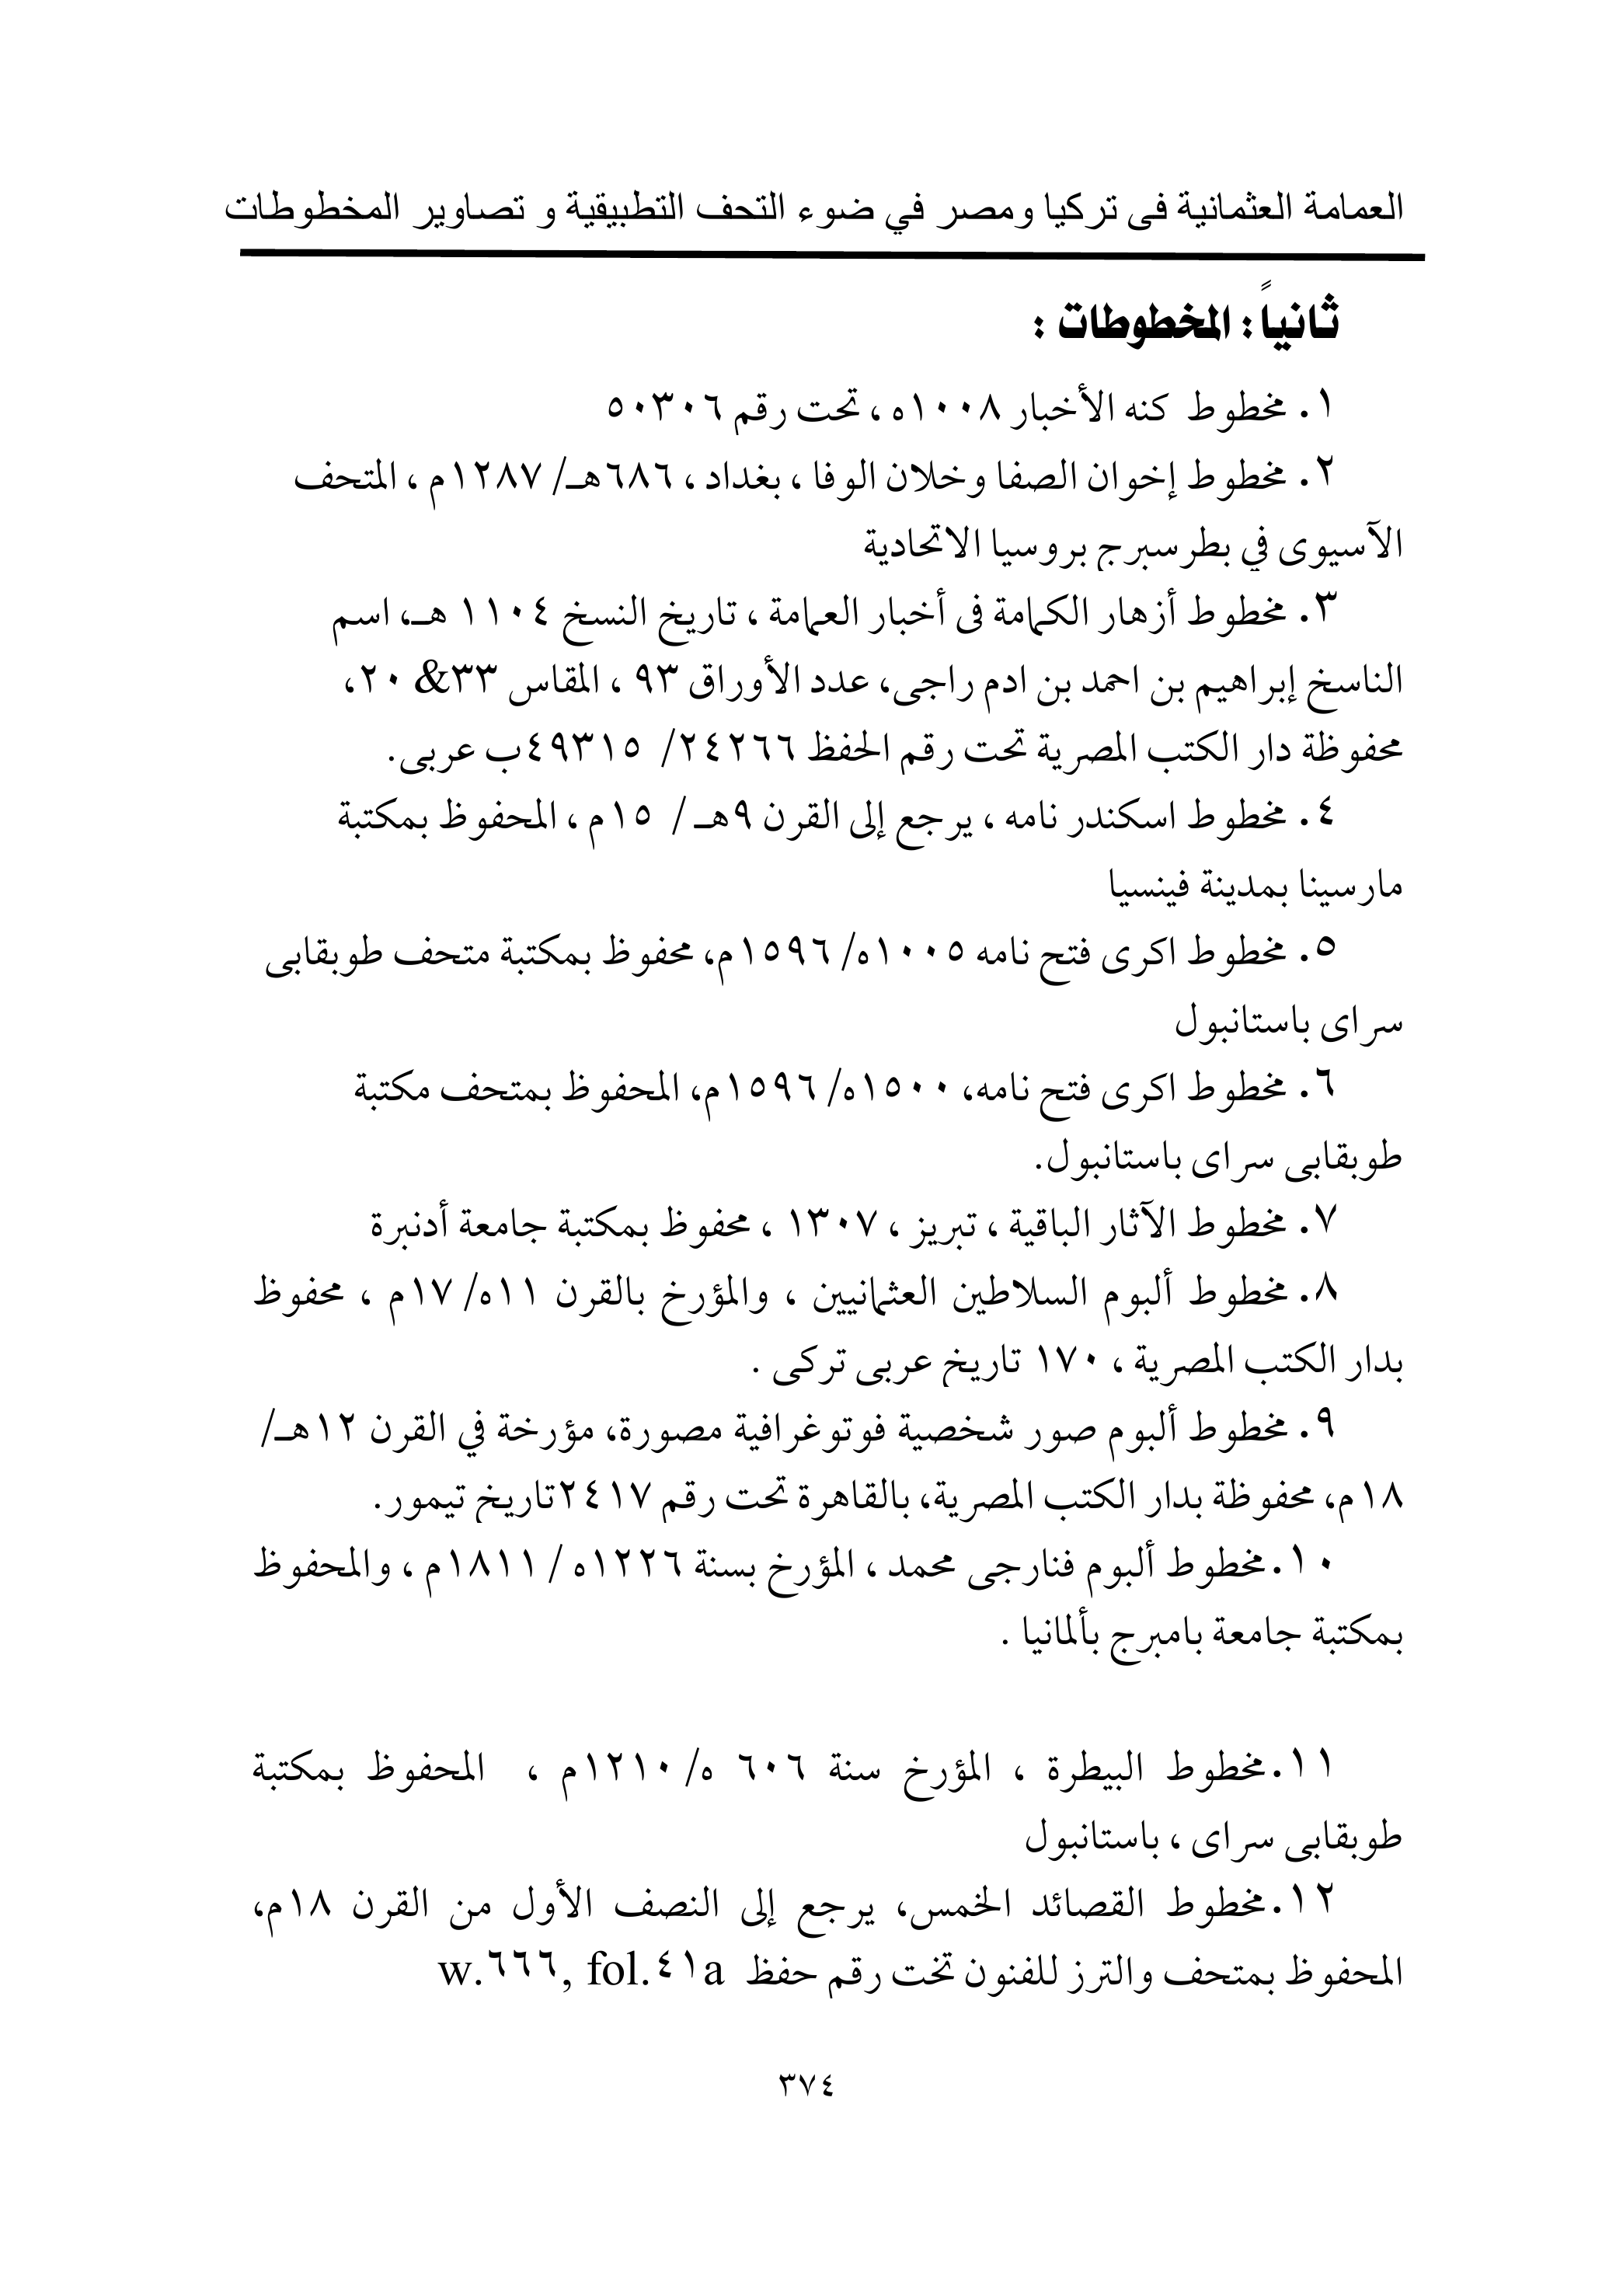 العمامة العثمانية فى تركيا ومصر في ضوء التحف التطبيقية و تصاوير المخطوطات
ثانياً: المخطوطات :
١. مخطوط كنه الأخبار ١٠٠٨ه ، تحت رقم ٥٠٣٠٦
٢. مخطوط إخوان الصفا وخلان الوفا ، بغداد ، ٦٨٦هـ/ ١٢٨٧م ، المتحف
الآسيوى في بطرسبرج بروسيا الاتحادية
٣. مخطوط أزهار الكمامة فى أخبار العمامة ، تاريخ النسخ ١١٠٤ هـ، اسم
الناسخ إبراهيم بن احمد بن ادم راجى، عدد الأوراق ٩٣ ، المقاس ٣٣& ٢٠،
محفوظة دار الكتب المصرية تحت رقم الحفظ ٢٤٢٦٦/ ٤٩٣١٥ب عربى.
٤. مخطوط اسكندر نامه ، يرجع إلى القرن ٩هـ / ١٥م ، المحفوظ بمكتبة
مارسينا بمدينة فينسيا
٥. مخطوط اكرى فتح نامه ١٠٠٥ه/ ١٥٩٦م، محفوظ بمكتبة متحف طوبقابى
سراى باستانبول
٦. مخطوط اكرى فتح نامه، ١٥٠٠ه/ ١٥٩٦م، المحفوظ بمتحف مكتبة
طوبقابى سراى باستانبول.
٧. مخطوط الآثار الباقية ، تبريز ، ١٣٠٧ ، محفوظ بمكتبة جامعة أدنبرة
٨. مخطوط ألبوم السلاطين العثمانيين ، والمؤرخ بالقرن ١١ه/ ١٧م ، محفوظ
بدار الكتب المصرية ، ١٧٠ تاريخ عربى تركى .
٩. مخطوط ألبوم صور شخصية فوتوغرافية مصورة، مؤرخة في القرن ١٢هـ/
١٨م، محفوظة بدار الكتب المصرية، بالقاهرة تحت رقم ٢٤١٧تاريخ تيمور.
١٠. مخطوط ألبوم فنارجى محمد ، المؤرخ بسنة ١٢٢٦ه / ١٨١١م ، والمحفوظ
بمكتبة جامعة بامبرج بألمانيا .
١١. مخطوط البيطرة ، المؤرخ سنة ٦٠٦ ه/ ١٢١٠م ، المحفوظ بمكتبة
طوبقابى سراى ، باستانبول
١٢. مخطوط القصائد الخمس، يرجع إلى النصف الأول من القرن ١٨م،
المحفوظ بمتحف والترز للفنون تخت رقم حفظ w.٦٦٦, fol.٤١a
٣٧٤